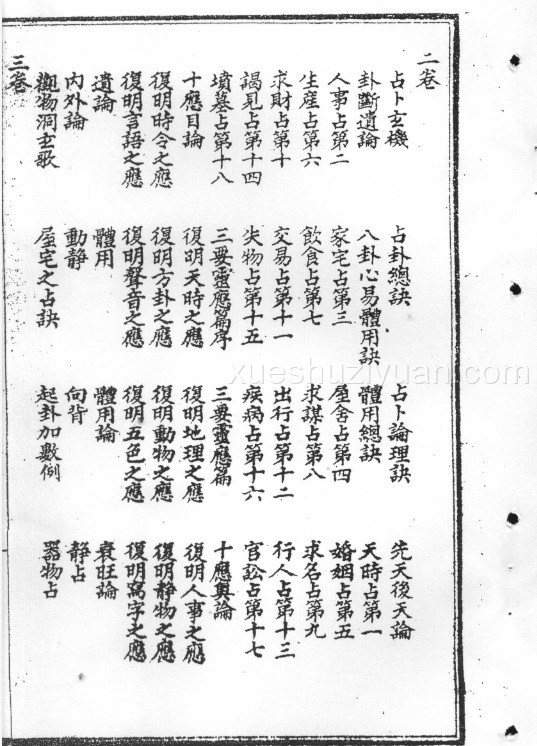 二卷
占卜玄機 占卦總訣 占卜論理訣 先天後天論
卦斷遺論 八卦心易體用訣 體用總訣 天時占第一
人事占第二 家宅占第三 屋舍占第四 婚姻占第五
生産占第六 飲食占第七 求謀占第八 求名占第九
求財占第十 交易占第十一 出行占第十二 行人占第十三
謁見占第十四 失物占第十五 疾病占第十六 官訟占第十七
墳墓占第十八 三要靈應篇序 三要靈應篇 十應奧論
十應目論 復明天時之應 復明地理之應 復明人事之應
復明時令之應 復明方卦之應 復明動物之應 復明靜物之應
復明言語之應 復明聲音之應 復明五色之應 復明寫字之應
遺論 體用 體用論 衰旺論
內外論 動靜 向背 靜占
觀物洞玄歌 屋宅之占訣 起卦加數例 器物占
三卷
xueshuziyuan.com